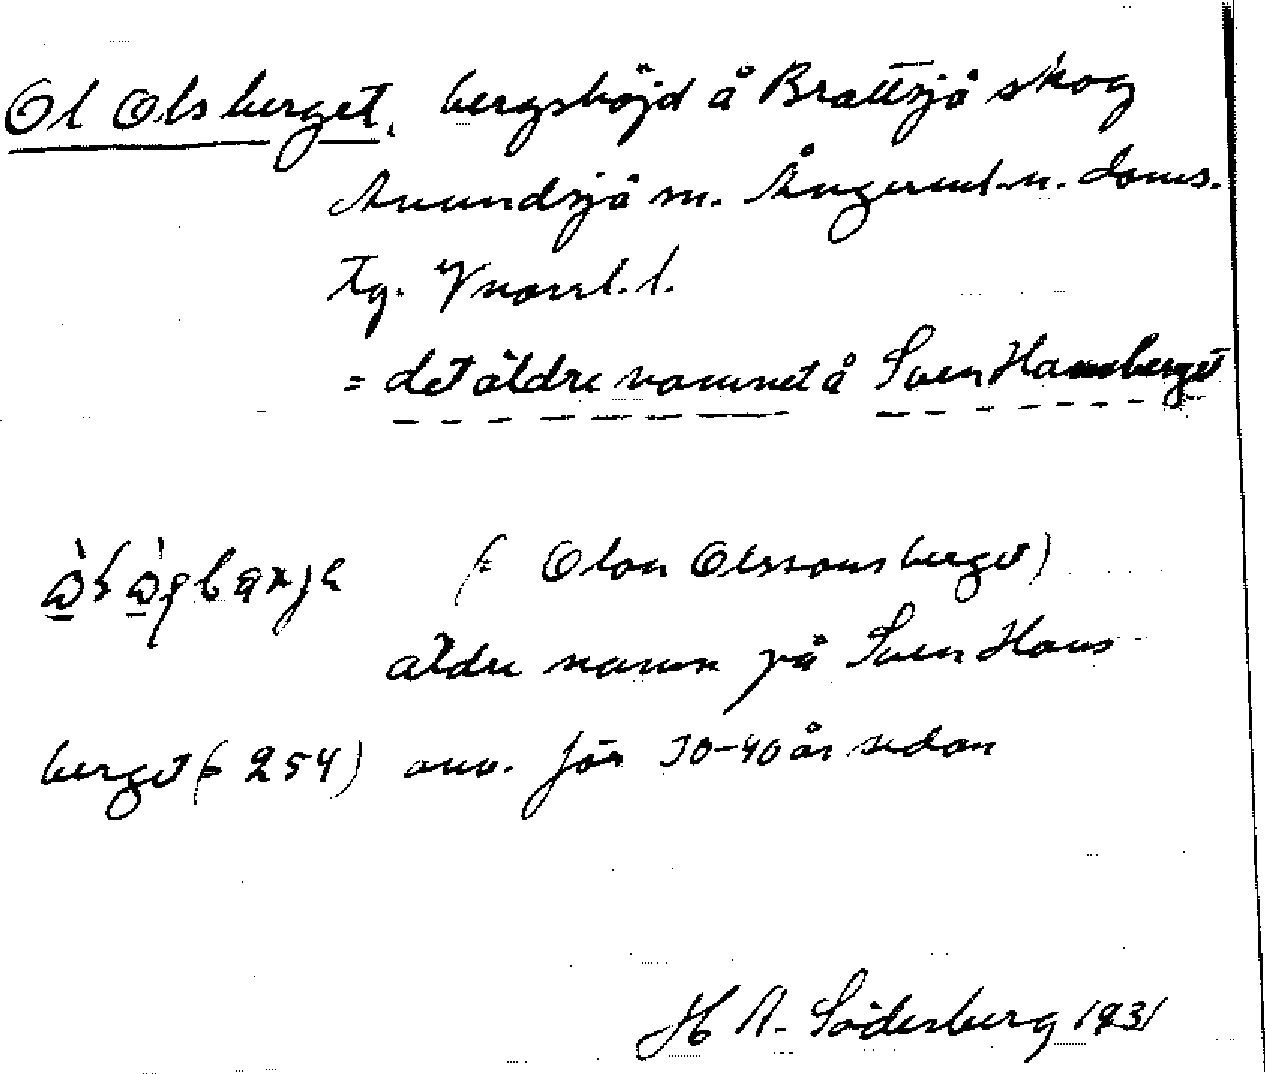 Ol Olsberget, bergshöjd å Brattsjö skog
Anundsjö sn. Ångerml. n. doms.
tg. Vnorrl. l.
= det äldre namnet å Sven Hansberget
(= Olov Olssonsberget)
äldre namn på Sven Hans
berget (= 254) anv. för 30-40 år sedan
H A. Söderberg 1931